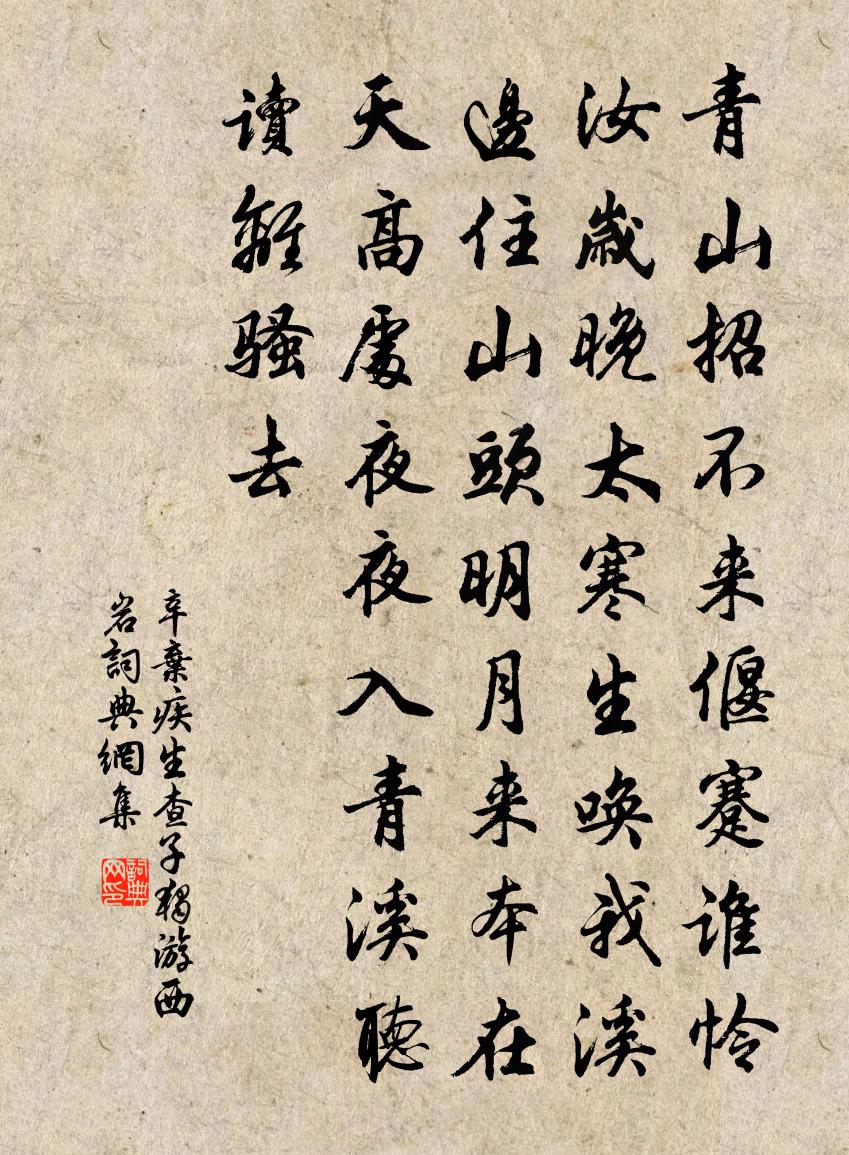 青山招不来偃蹇谁怜
汝歲晚太寒生唤我溪
邊住山頭明月来本在
天高處夜夜入青溪聽
读離骚去
辛棄疾生查子独游西
岩詞典網集
詞典网印